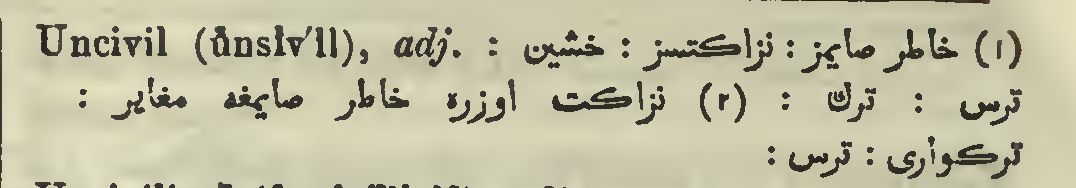 Uncivil (ŭnsĭv′ĭl), adj. (١) خاطر صايمز : نزاكتسز : خشين :
ترس : ترك : (٢) نزاكت اوزره خاطر صايمغه مغاير :
تركوارى : ترس :